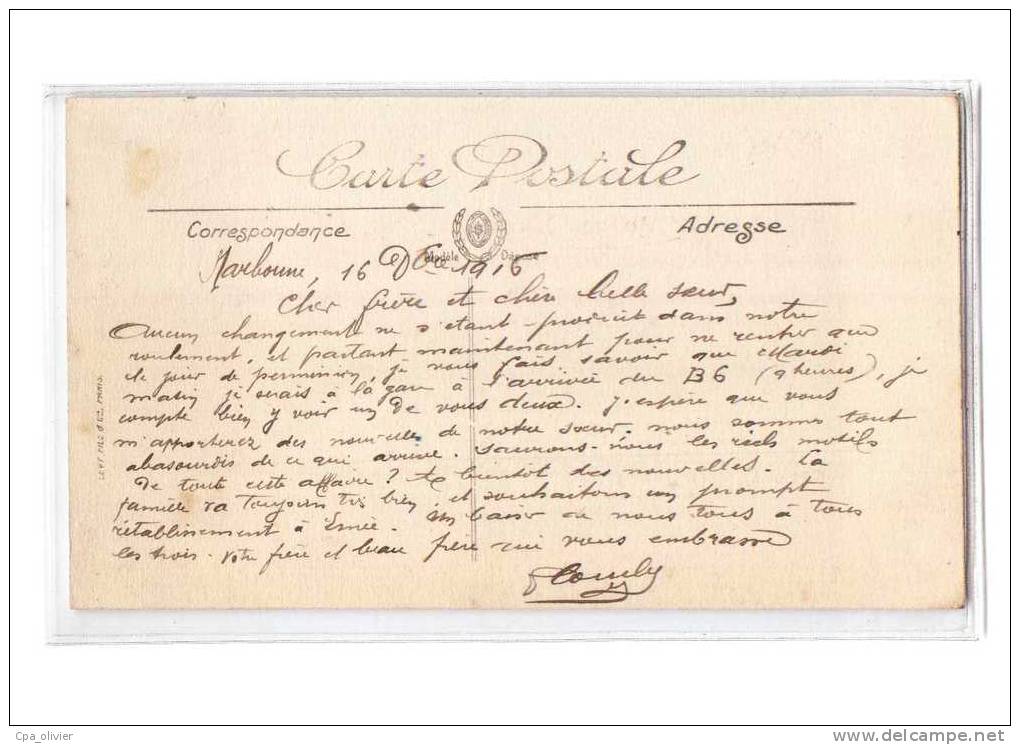 Carte Postale
Correspondance
Adresse
Modèle Déposé
Narbonne, 16 Xbre 1916
Cher frère et chère belle sœur,
Aucun changement ne s'étant produit dans notre
roulement, et partant maintenant pour ne rentrer que
le jour de permission, je vous fais savoir que Mardi
matin je serais à la gare à l'arrivée du B6 (9 heures), je
compte bien y voir un de vous deux. J'espère que vous
m'apporterez des nouvelles de notre sœur. nous sommes tout
abasourdis de ce qui arrive. Saurons-nous les réels motifs
De toute cette affaire? A bientôt des nouvelles. La
famille va toujours très bien et souhaitons un prompt
rétablissement à Émée. Un baiser de nous tous à tous
les trois. Votre frère et beau frère qui vous embrasse
LEVY FILS & Cie, PARIS.
Cpa_olivier
www.delcampe.net